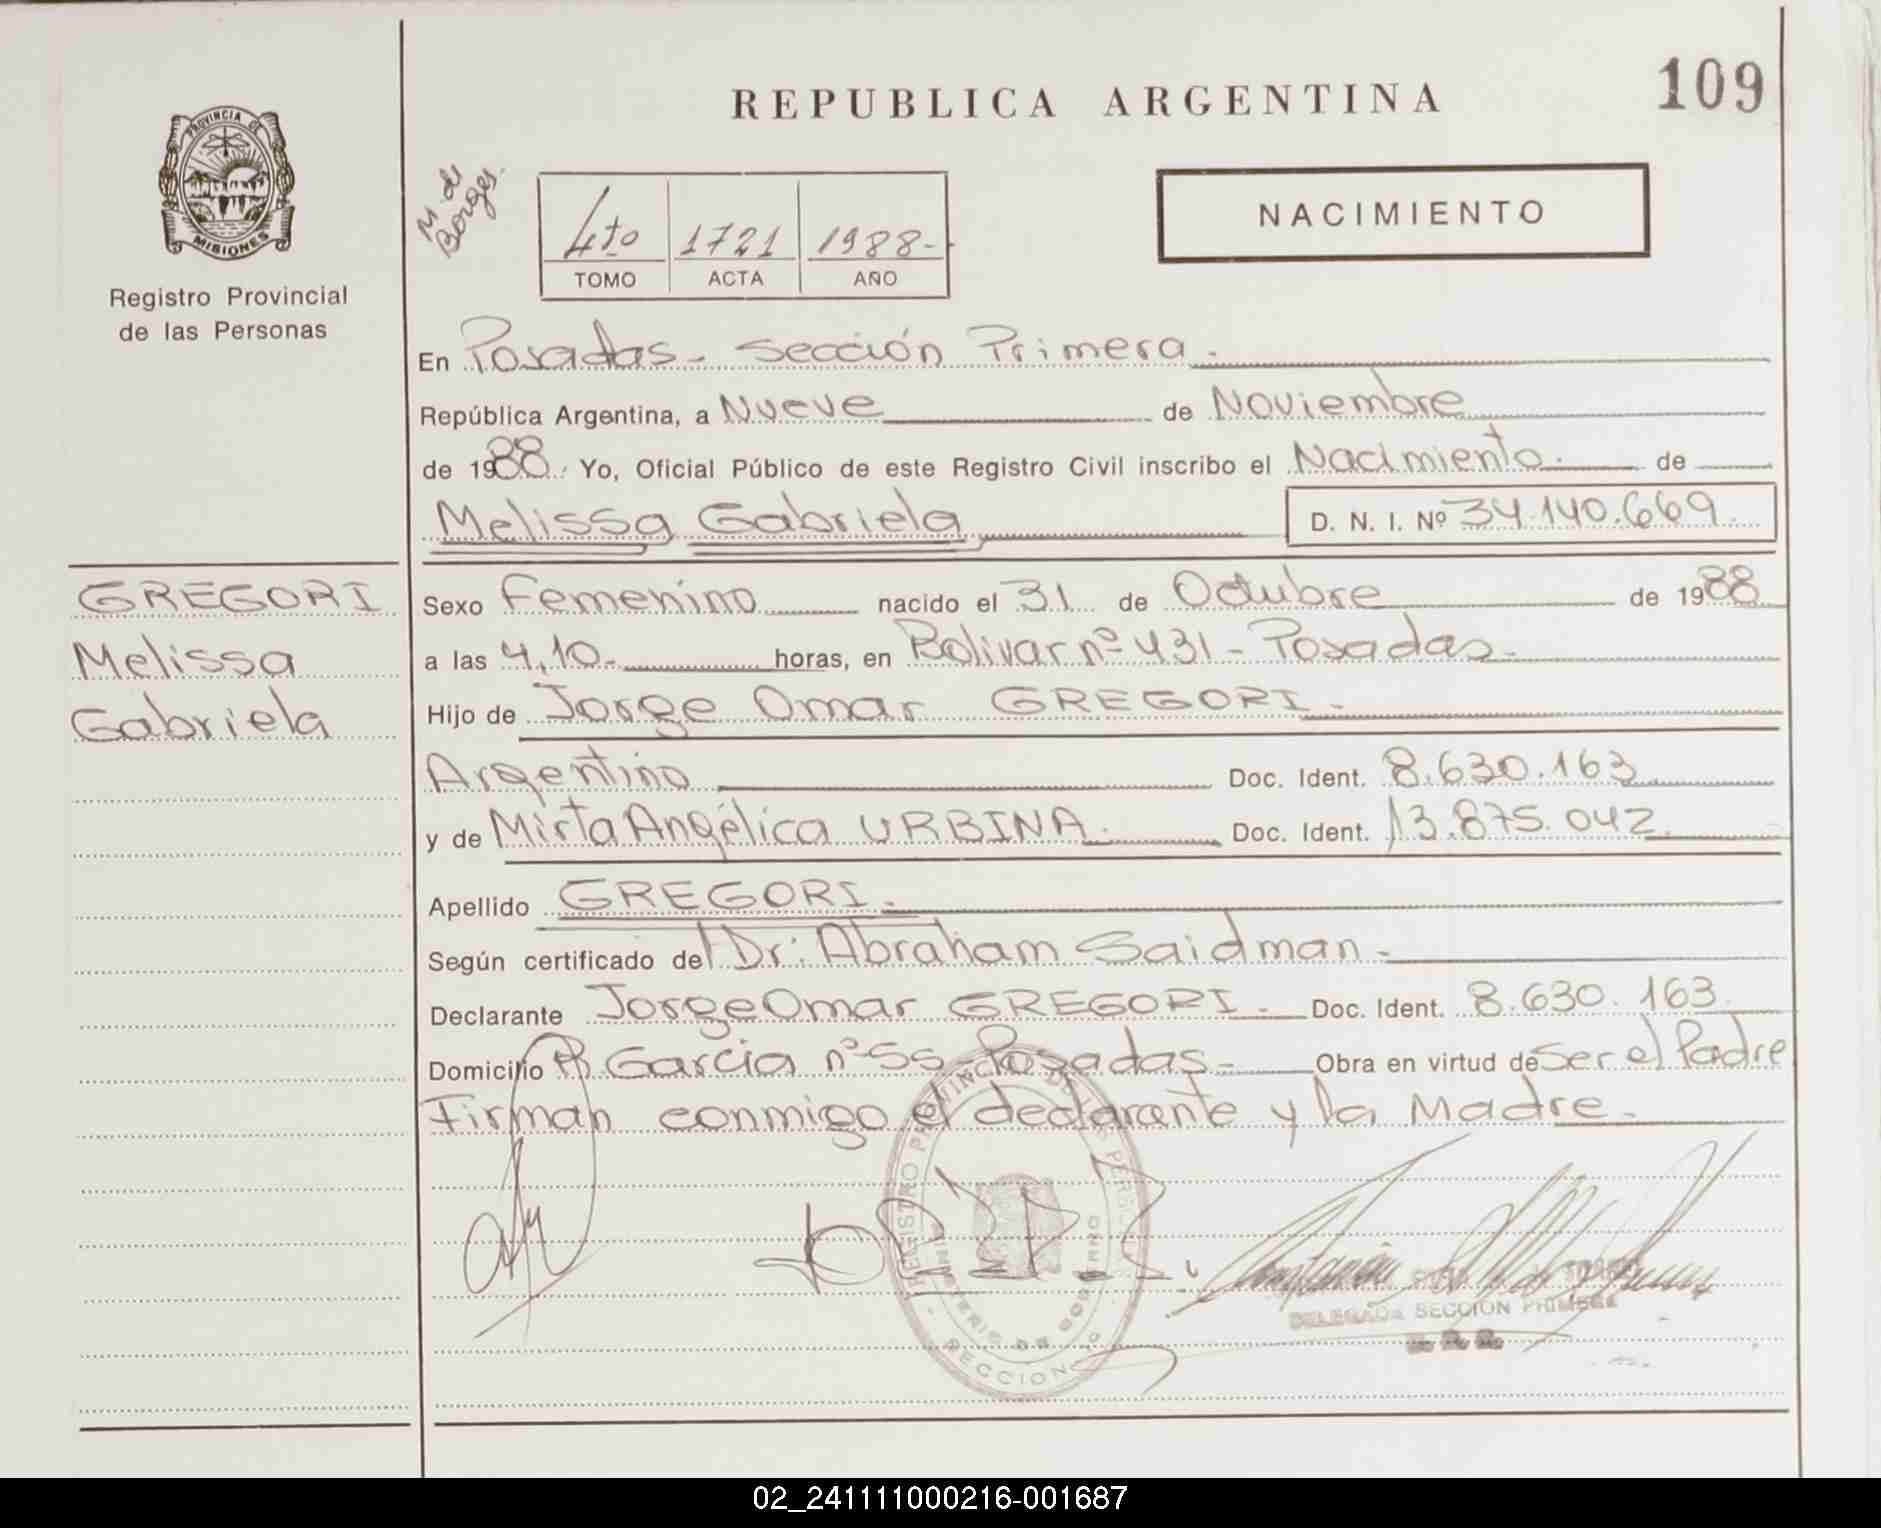 REPUBLICA ARGENTINA
109
PROVINCIA DE
MISIONES
Registro Provincial
de las Personas
M. de
Borges.
4to 1721 1988-
TOMO ACTA AÑO
NACIMIENTO
En Posadas- Sección Primera.
República Argentina, a Nueve de Noviembre
de 1988. Yo, Oficial Público de este Registro Civil inscribo el Nacimiento. de
Melissa Gabriela
D. N. I. Nº 34.140.669.
GREGORI
Melissa
Gabriela
Sexo Femenino nacido el 31 de Octubre de 1988
a las 4,10. horas, en Bolivar nº 431 - Posadas.
Hijo de Jorge Omar GREGORI.
Argentino Doc. Ident. 8.630.163
y de Mirta Angélica URBINA. Doc. Ident. 13.875.042
Apellido GREGORI.
Según certificado del Dr: Abraham Saidman.
Declarante Jorge Omar GREGORI. Doc. Ident. 8.630.163.
Domicilio Garcia nº 55 Posadas- Obra en virtud de Ser el Padre
Firman conmigo el declarante y la Madre.
REGISTRO PROVINCIAL DE LAS PERSONAS
MINISTERIO DE GOBIERNO
SECCION
DELEGADA SECCION PRIMERA
02_241111000216-001687